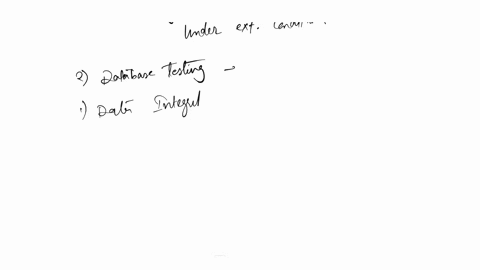 Under ext.
2) Database Testing →
1) Data Integri